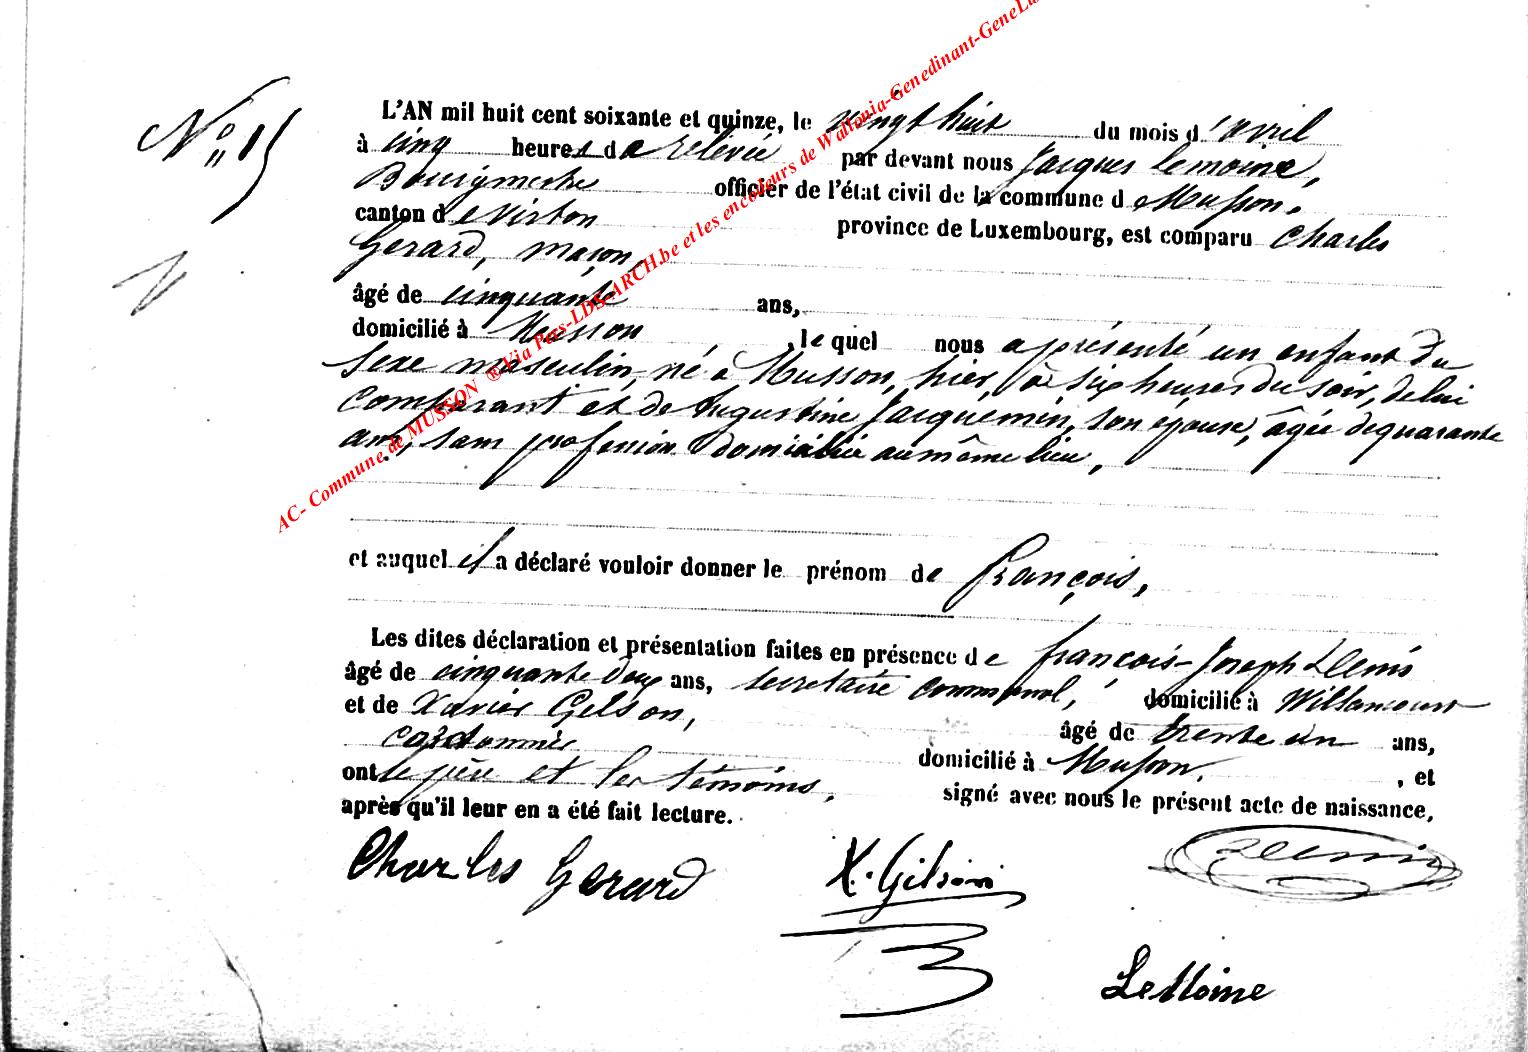 N° 15
L'AN mil huit cent soixante et quinze, le vingt huit du mois d'avril
à cinq heures de relevée par devant nous Jacques Lemoine,
Bourgmestre officier de l'état civil de la commune de Musson,
canton de Virton province de Luxembourg, est comparu Charles
Gérard, maçon,
âgé de cinquante ans,
domicilié à Musson, lequel nous a présenté un enfant du
sexe masculin, né à Musson, hier, à six heures du soir, de lui
comparant et de Augustine Jacquemin, son épouse, âgée de quarante
ans, sans profession domiciliée au même lieu,
et auquel il a déclaré vouloir donner le prénom de François,
Les dites déclaration et présentation faites en présence de François-Joseph Denis
âgé de cinquante deux ans, secrétaire communal, domicilié à Willancourt
et de Xavier Gilson, âgé de trente un ans,
cordonnier domicilié à Musson, et
ont le père et les témoins, signé avec nous le présent acte de naissance,
après qu'il leur en a été fait lecture.
Charles Gerard X. Gilson Denis
LeMoine
AC- Commune de MUSSON ®Via Pers-LDS-ARCH.be et les encodeurs de Wallonia-Genedinant-GeneLu